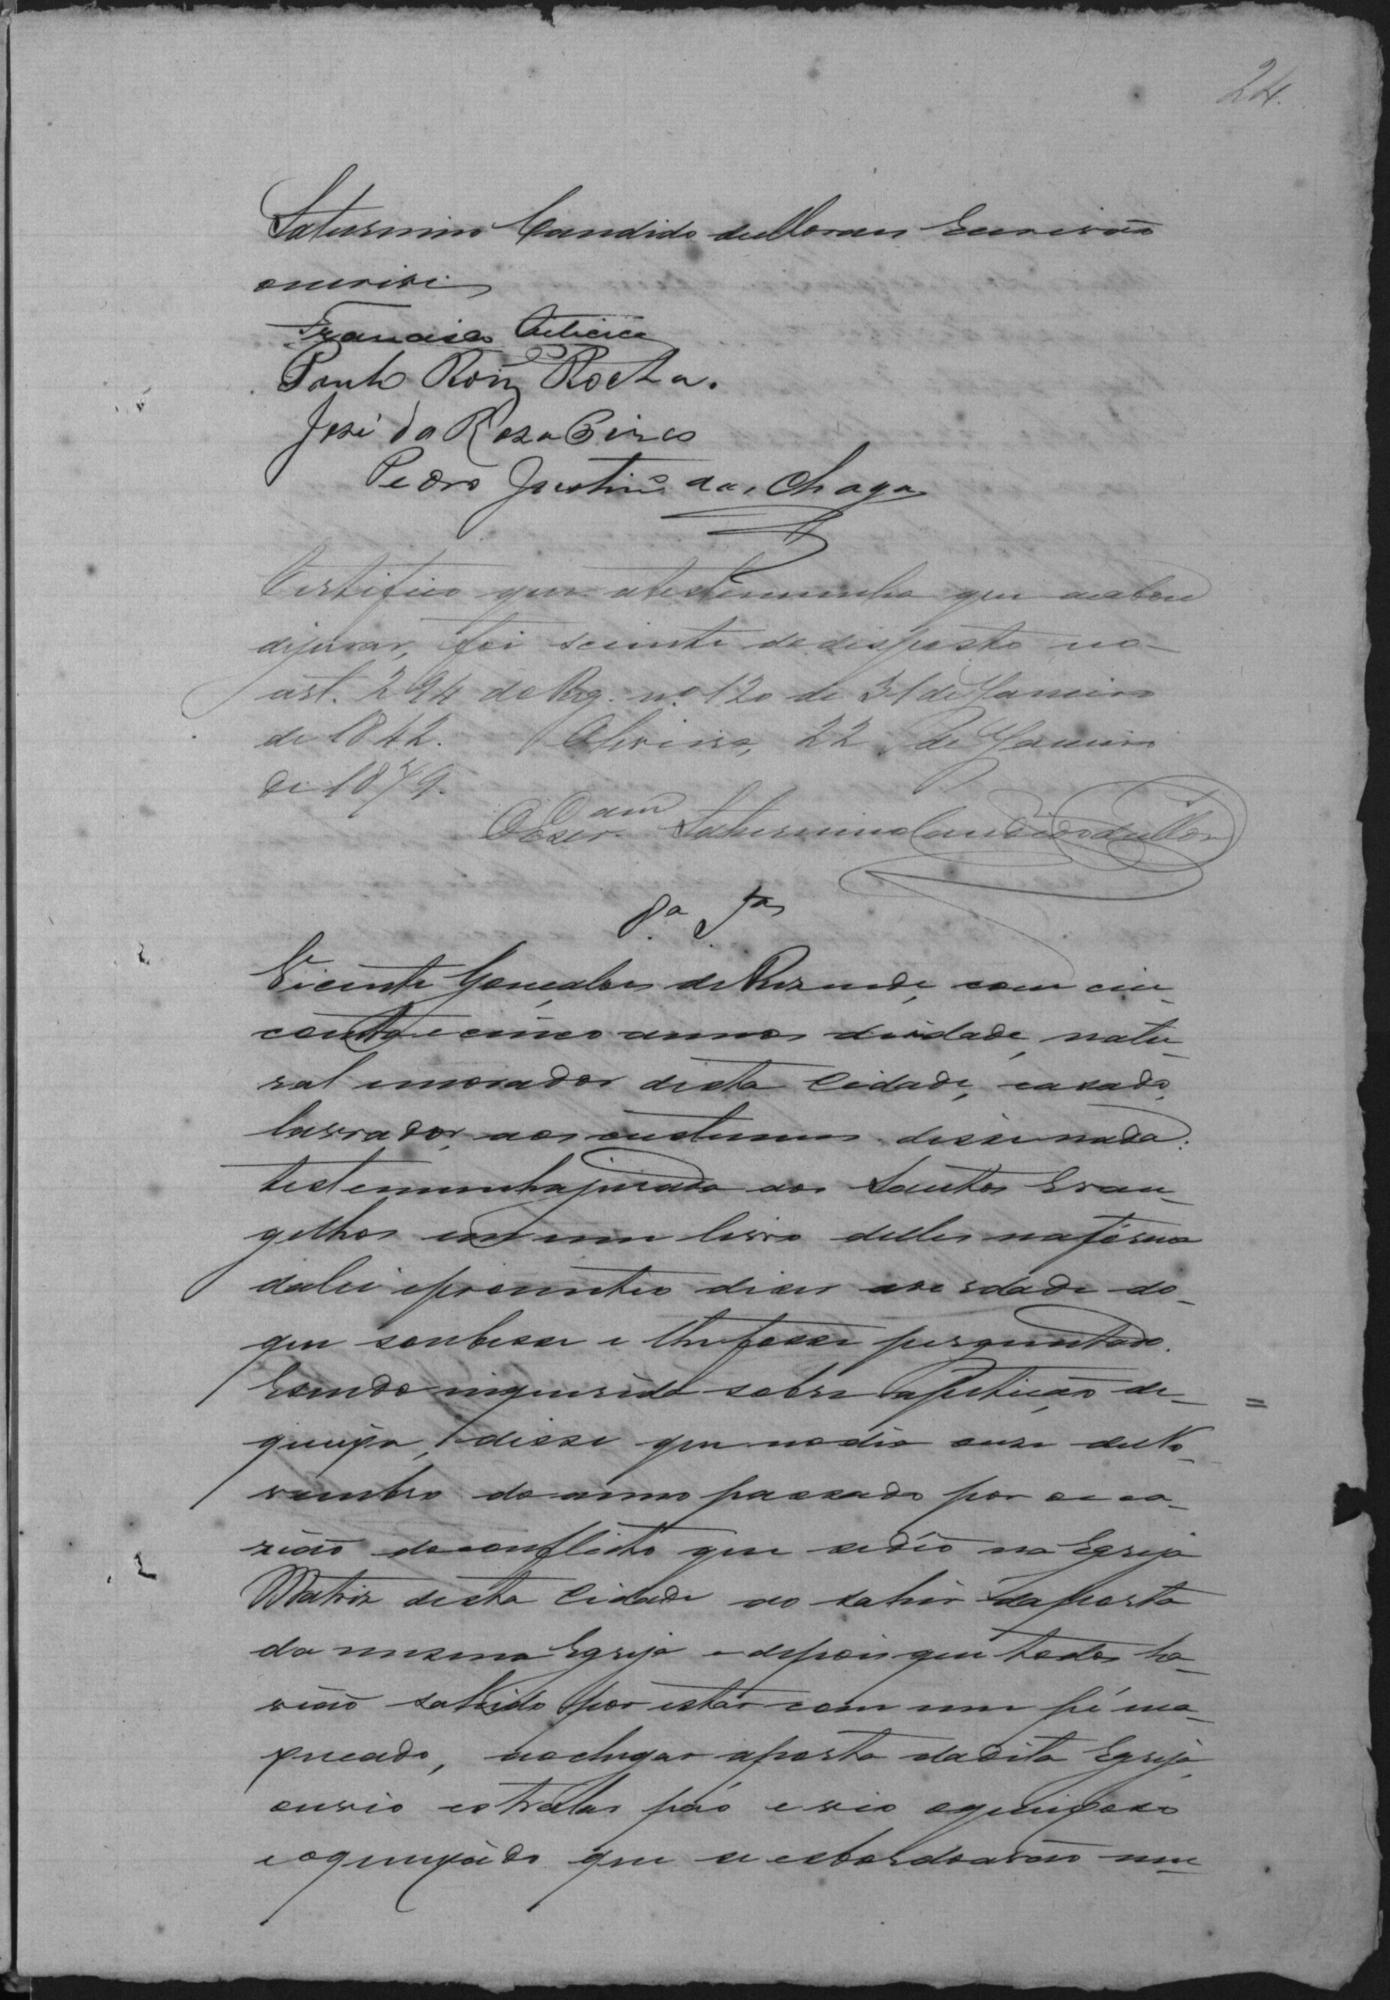 24.
Saturnino Candido de Moraes Escrivão
escrevi
Francisco
Paulo Roiz Rocha.
José da Rosa Pires
Pedro Justino das Chagas
Certifico que a testemunha que acabou
de jurar, foi sciente do disposto no
art. 294 do Reg. nº 120 de 31 de Janeiro
de 1842. Oliveira, 22 de Janeiro
de 1879.
O Escr.am Saturnino Candido de Mor
8.a Ta
Vicente Gonçalves de Rezende, com cin-
coenta e cinco annos de idade, natu-
ral e morador desta Cidade, casado,
lavrador, aos custumes disse nada.
testemunha jurada aos Santos Evan-
gelhos em um livro delles na fórma
da lei e prometteo dizer a verdade do
que soubesse e lhe fosse perguntado.
E sendo inquerido sobre a petição de
queixa, disse que no dia onze de No-
vembro do anno passado por occa-
zião do conflicto que se dêo na Egreja
Matriz desta Cidade ao sahir da porta
da mesma Egreja e depois que todos ha-
vião sahido por estar com um pé ma-
xucado, ao chegar a porta da dita Egreja,
ouvio estralar páo e vio o queixoso
e o queixádo que se esbordoavão mu-